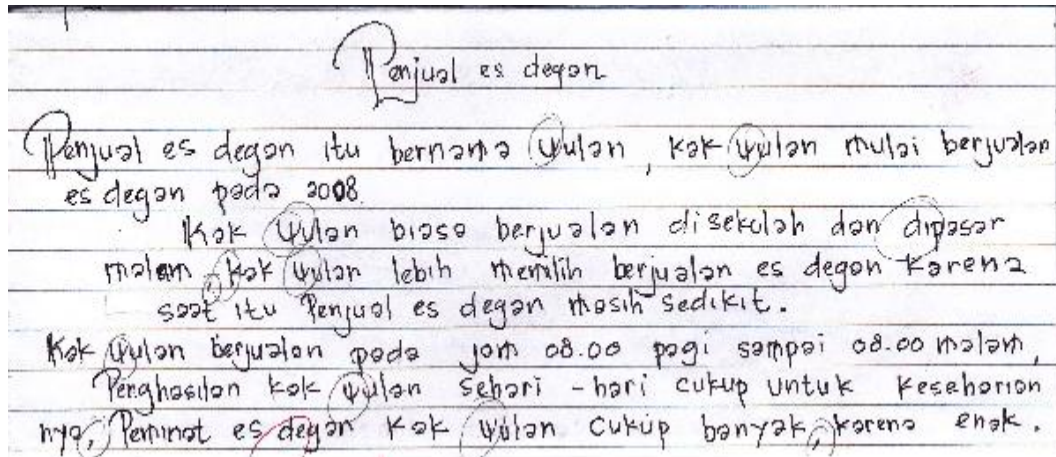 Penjual es degan
Penjual es degan itu bernama Wulan, kak Wulan mulai berjualan
es degan pada 2008
Kak Wulan biasa berjualan disekolah dan dipasar
malam, kak Wulan lebih memilih berjualan es degan karena
saat itu Penjual es degan masih sedikit.
Kak Wulan berjualan pada jam 08.00 pagi sampai 08.00 malam,
Penghasilan kak Wulan sehari-hari cukup untuk keseharian
nya, Peminat es degan kak Wulan cukup banyak, karena enak.